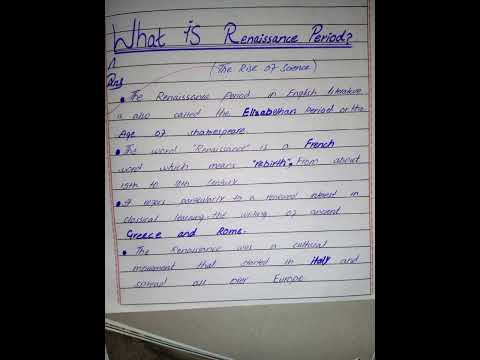 What is Renaissance Period?
(The Rise of Science)
Ans
• The Renaissance Period in English literature
is also called the Elizabethan Period or the
Age of Shakespeare
• The word "Renaissance" is a French
word which means "rebirth", From about
15th to
century
• It refers particularly to a renewed interest in
classical learning the writing of ancient
Greece and Rome.
• The Renaissance was a cultural
movement that started in Italy and
spread all over Europe